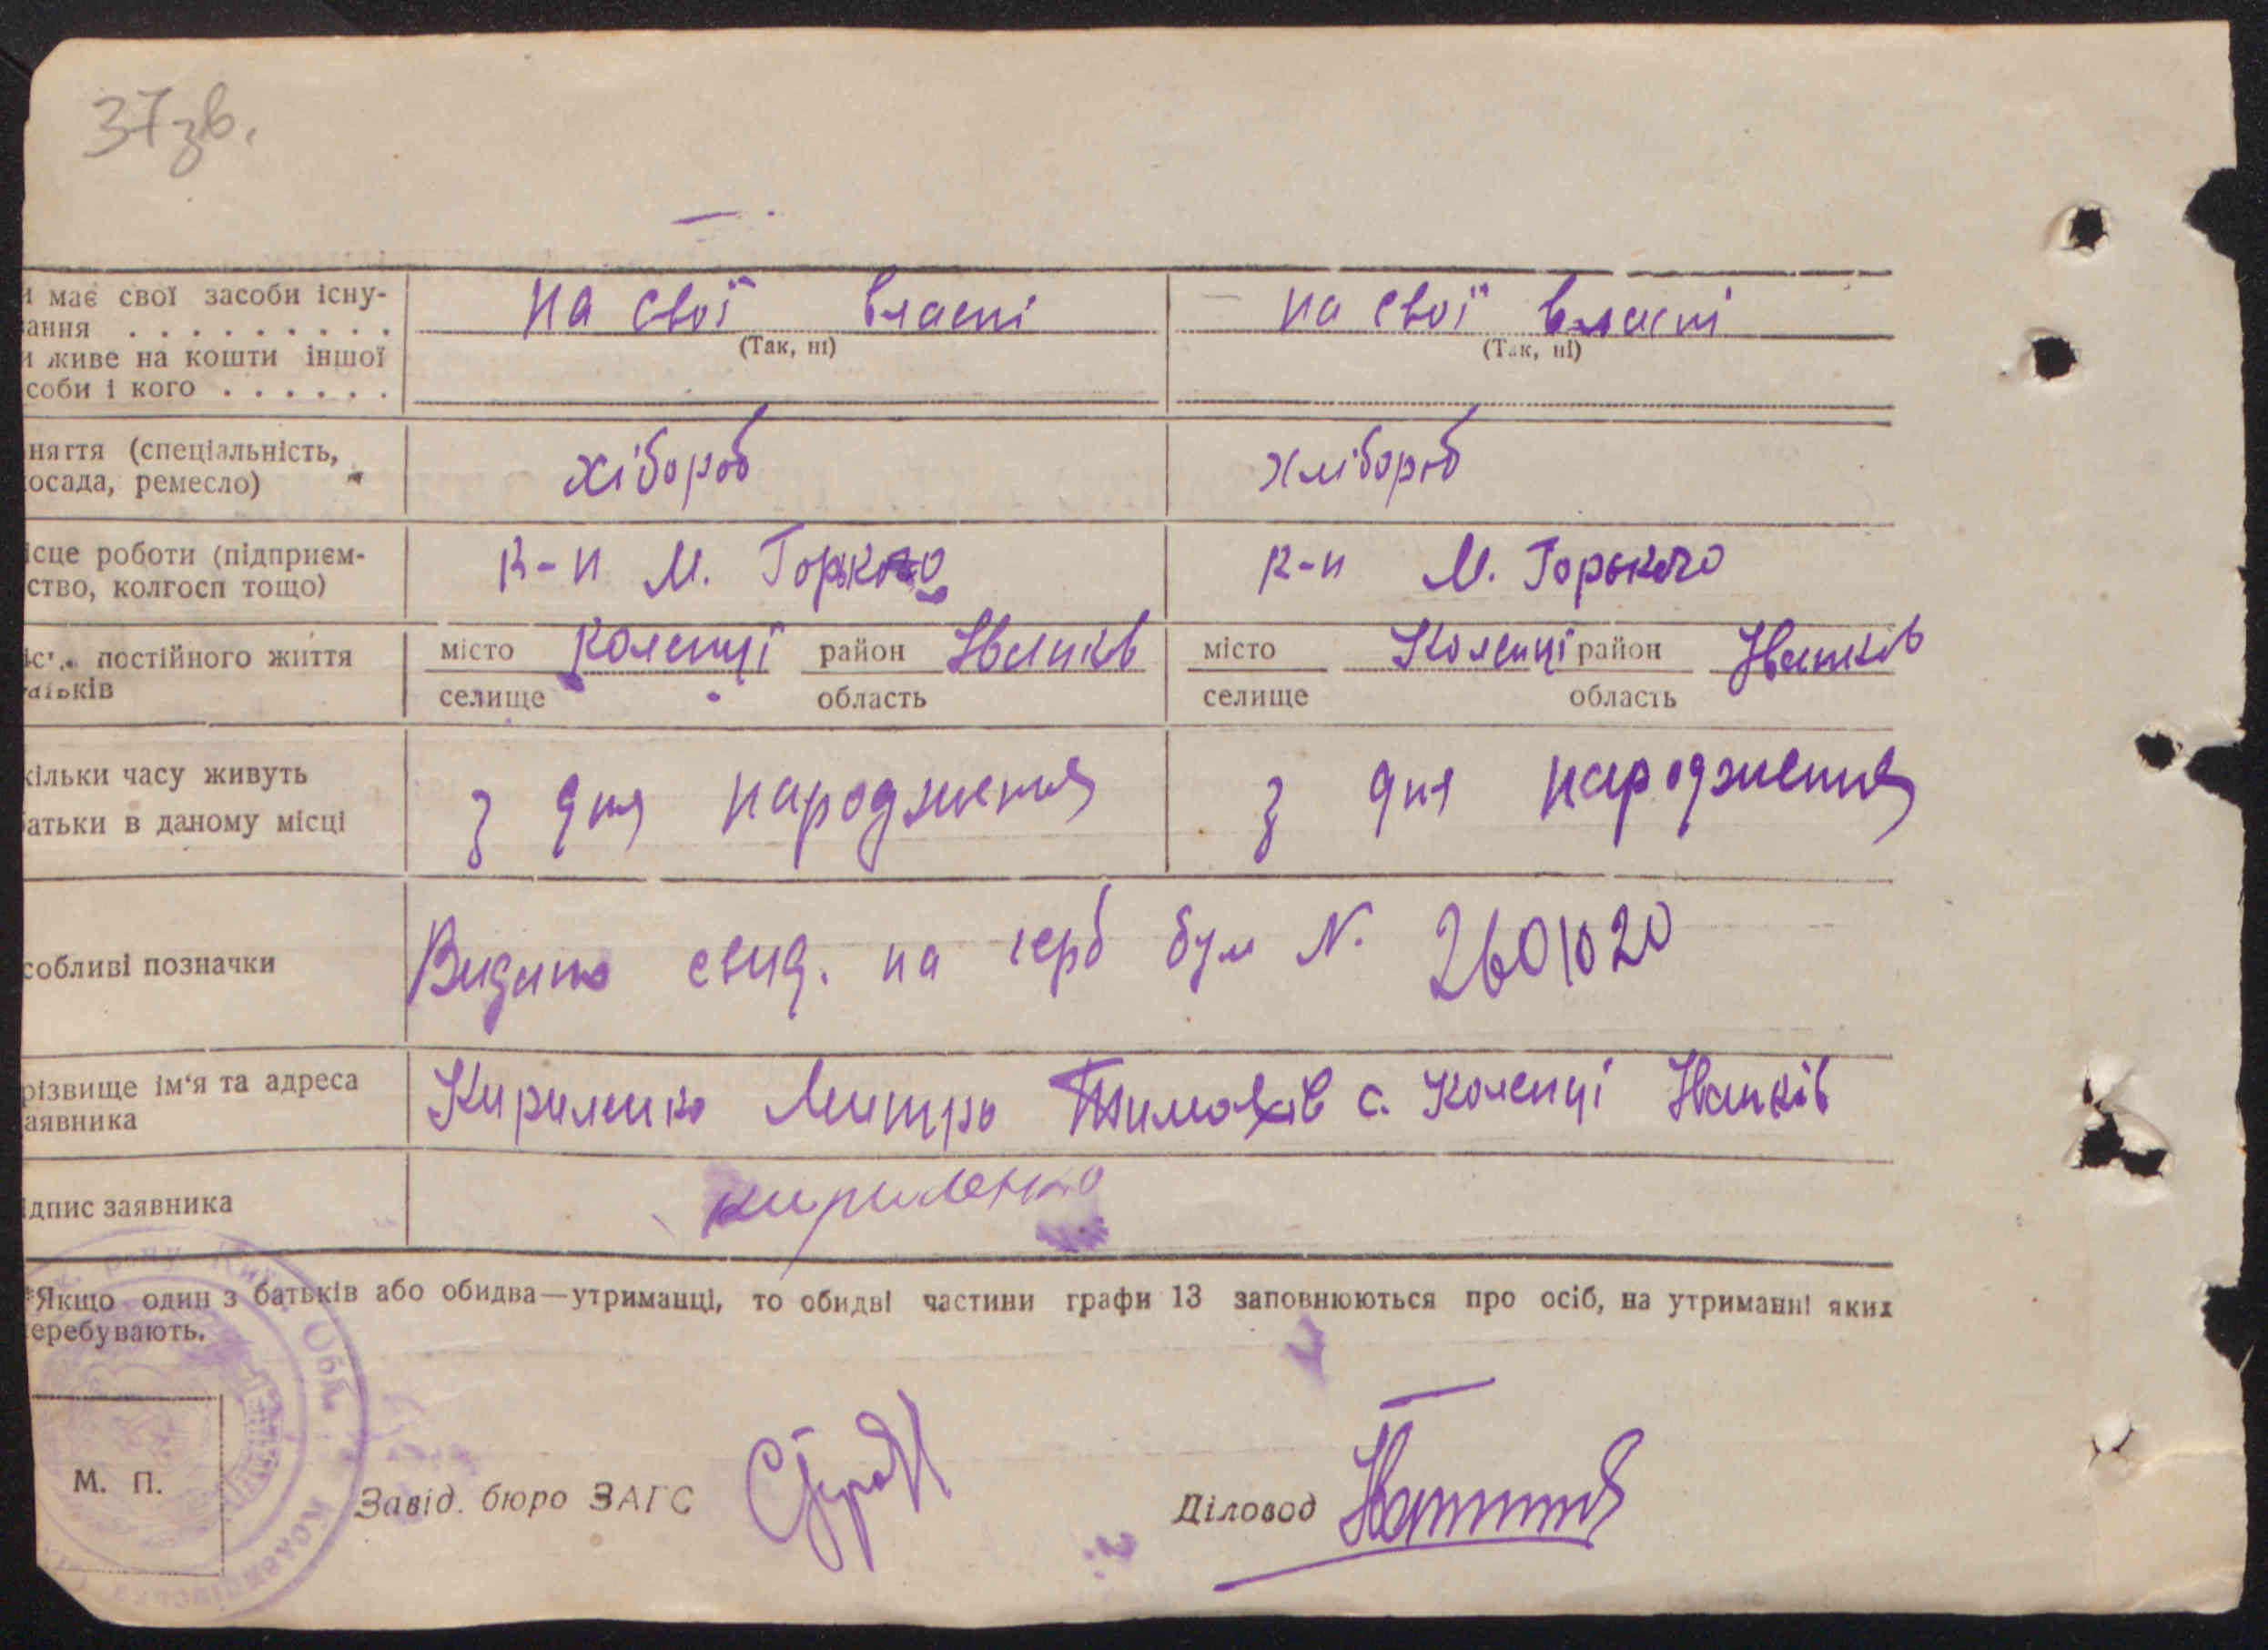 37зв.
и має свої засоби існу-
ання . . . . . . . . . на свої власні на свої власні
(Так, ні) (Так, ні)
и живе на кошти іншої
соби і кого . . . . . .
няття (спеціальність,
осада, ремесло) хібороб хлібороб
ісце роботи (підприєм-
ство, колгосп тощо) к-п М. Горького к-п М. Горького
іс. постійного життя
атьків
місто Коленці район Іванків місто Коленці район Іванків
селище область селище область
кільки часу живуть
атьки в даному місці з дня народження з дня народження
собливі позначки Видано свид. на герб бум N. 2601020
різвище ім‘я та адреса
аявника Кириленко Митро с. Коленці Іванків
ідпис заявника кириленко
*Якщо один з батьків або обидва—утриманці, то обидві частини графи 13 заповнюються про осіб, на утриманні яких
еребувають.
М. П.
Завід. бюро ЗАГС
Діловод